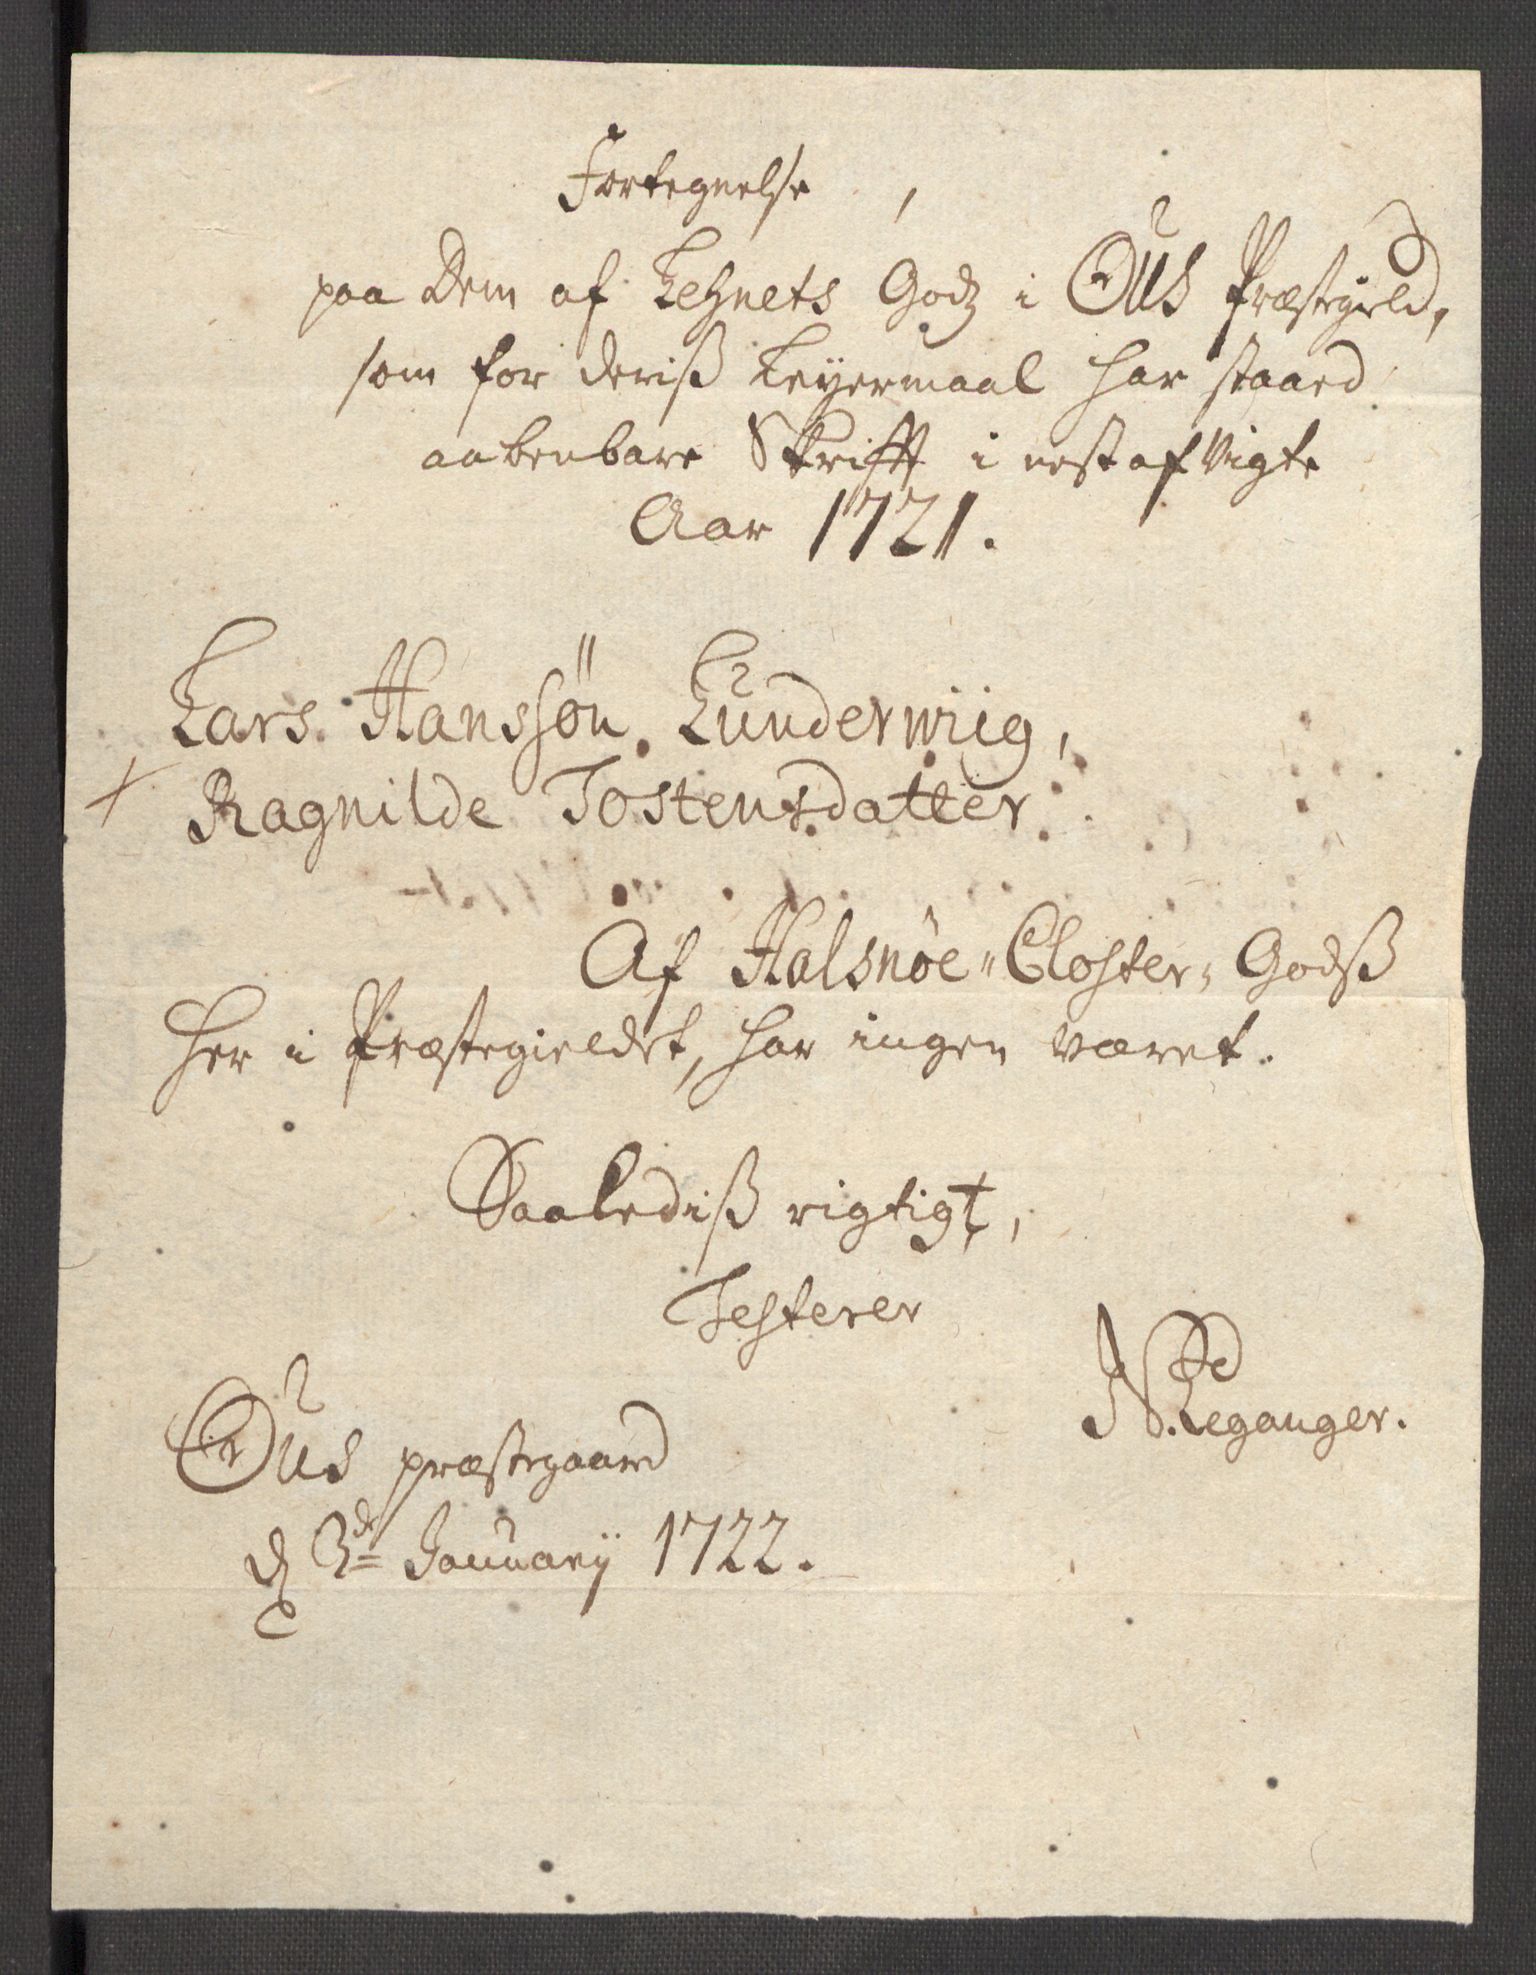 Fortegnelse,
paa Dem af Lehnets Godz i Ous Præstegield,
som for deriß Leyermaal har staaed
aabenbare Skrifft i nestafvigte
Aar 1721.
Lars Hanssøn Lunderwiig,
+ Ragnilde Tostensdatter
Af Halsnøe-Closter, Godß
her i Præstegieldet, har ingen været.
Saalediß rigtigt,
Testerer
N. Leganger.
Ous præstegaard
d 3de January 1722.